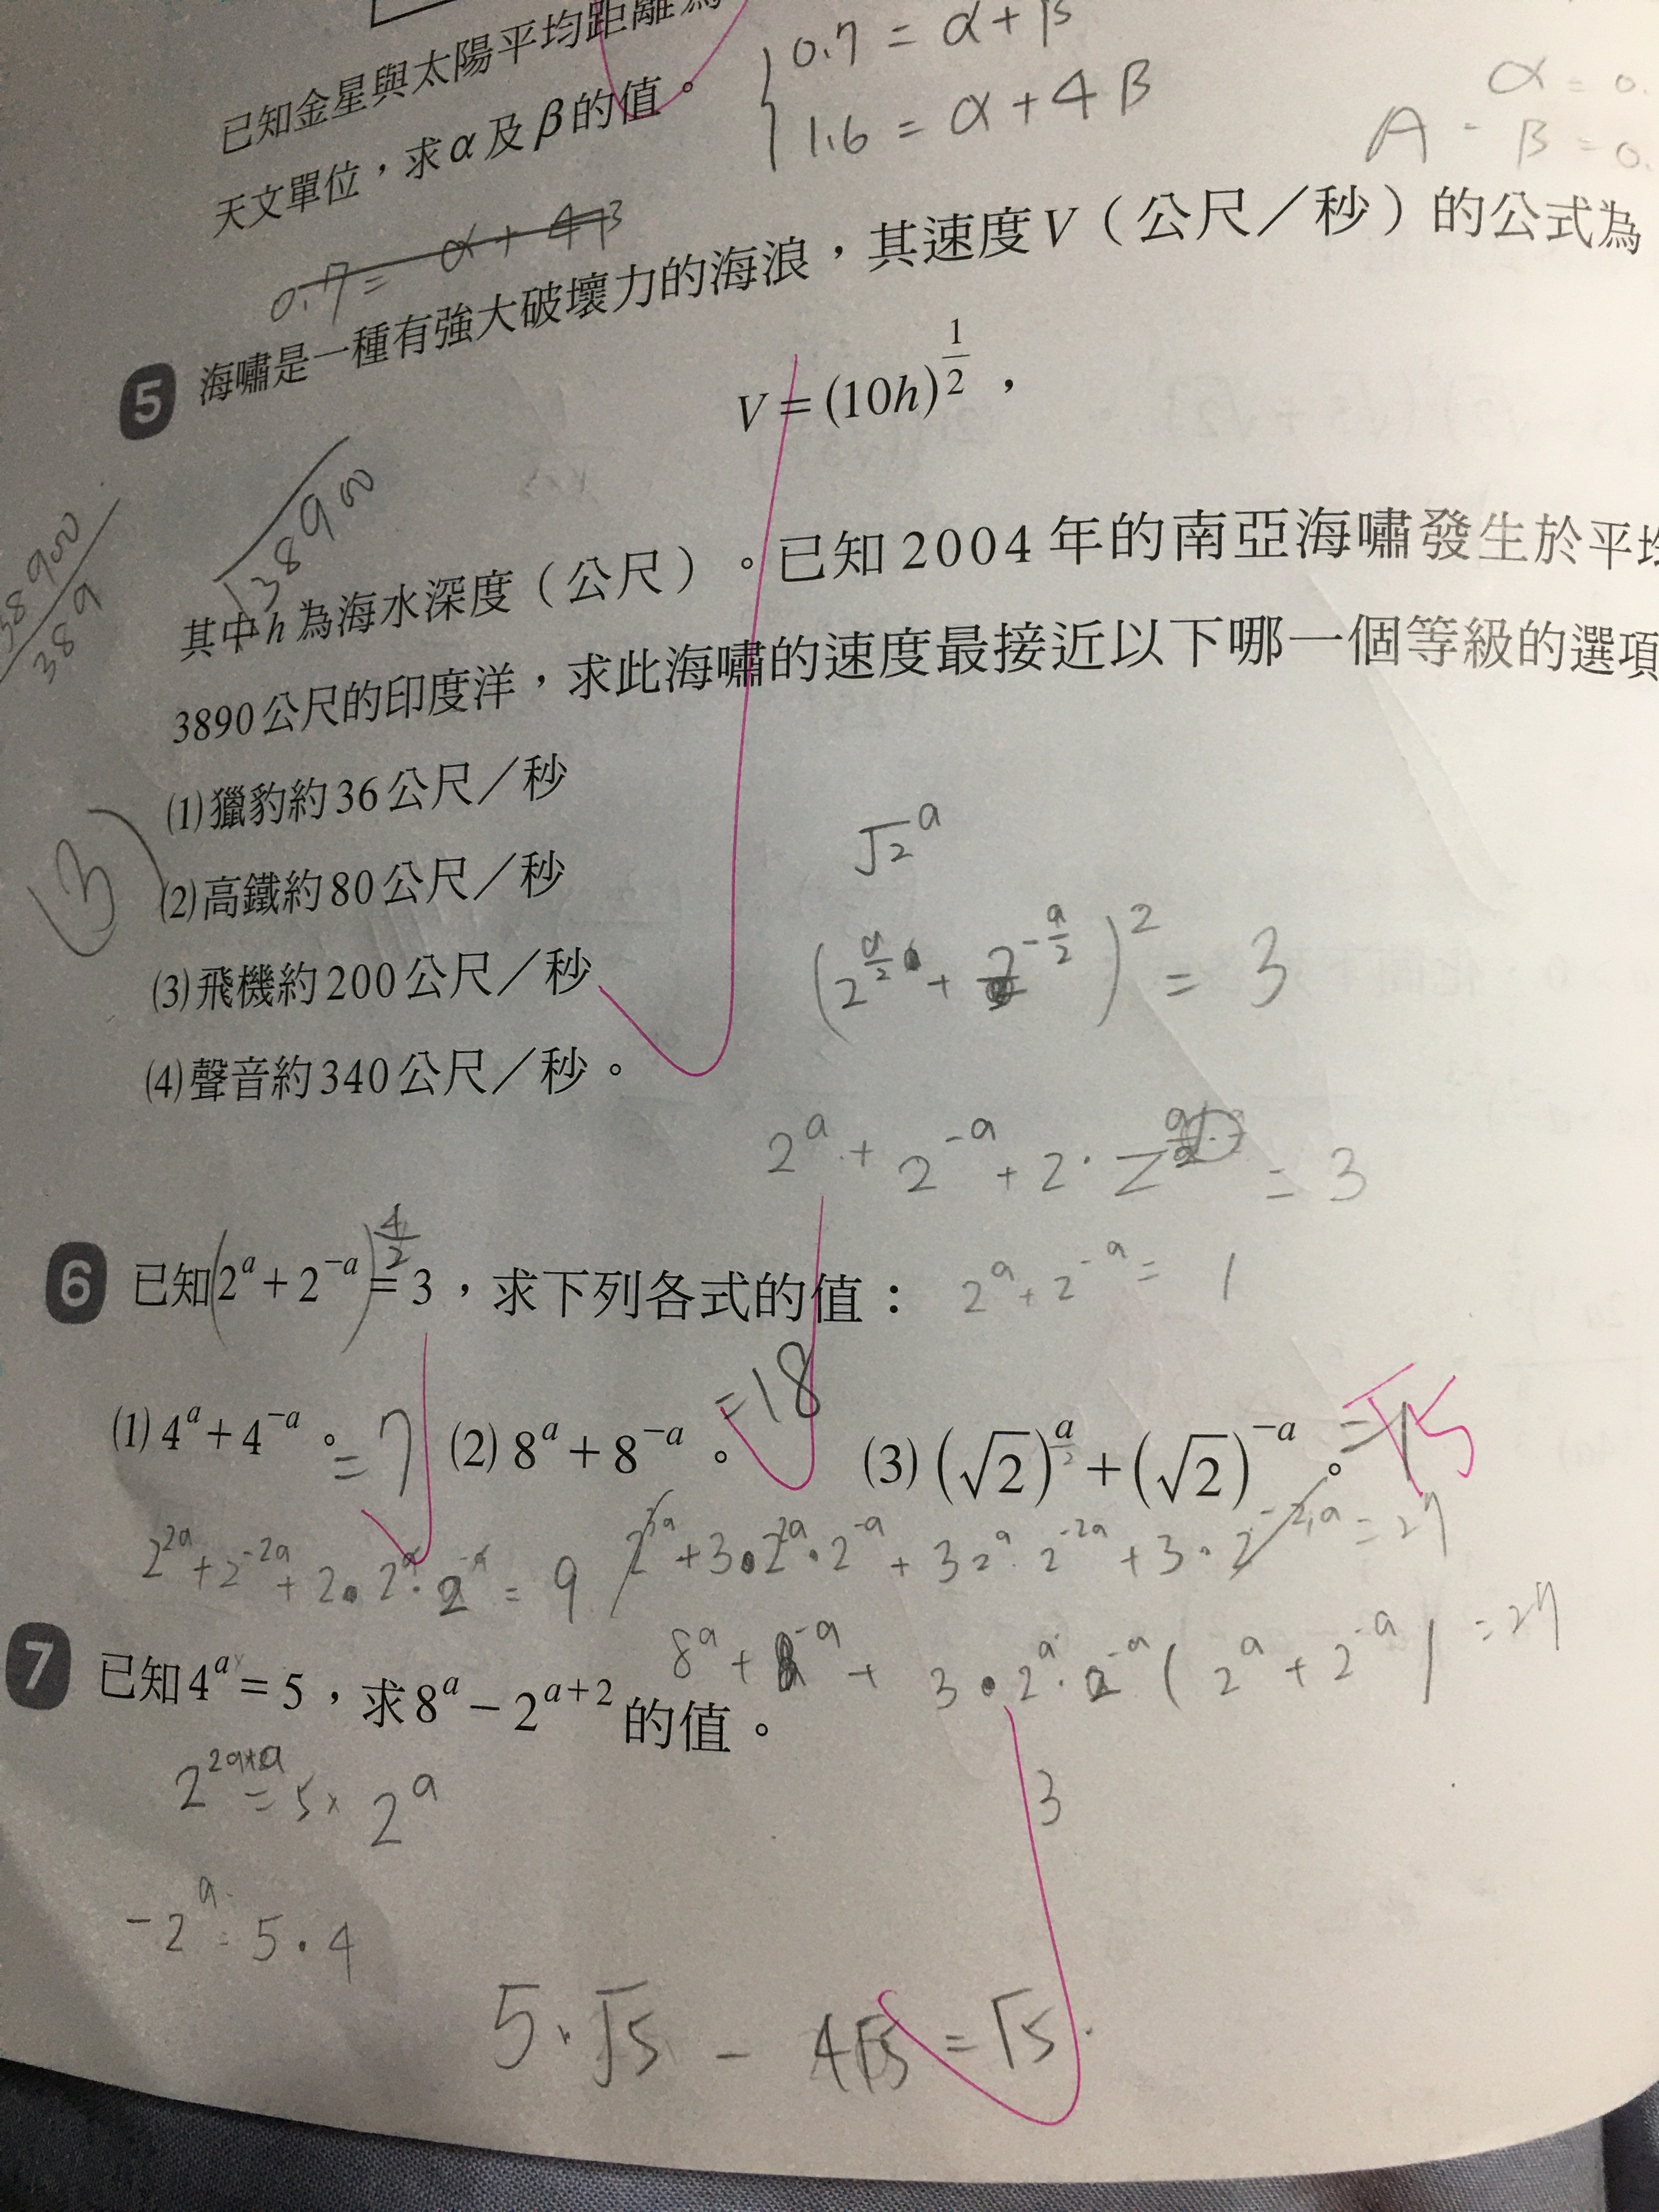 已知金星與太陽平均距離為
0.7 = α + β
天文單位，求α及β的值。
1.6 = α + 4β
α = 0.
A - β = 0.
0.7 = α + 4β
5 海嘯是一種有強大破壞力的海浪，其速度V（公尺／秒）的公式為
V = (10h)^{1/2}，
√38900
38900
389
其中h為海水深度（公尺）。已知2004年的南亞海嘯發生於平均
3890公尺的印度洋，求此海嘯的速度最接近以下哪一個等級的選項
(1)獵豹約36公尺／秒
(3)
(2)高鐵約80公尺／秒
(3)飛機約200公尺／秒
(4)聲音約340公尺／秒。
√2^a
(2^{a/2} + 2^{-a/2})^2 = 3
2^a + 2^{-a} + 2·2 = 3
6 已知(2^a + 2^{-a})^{4/2} = 3，求下列各式的值：
2^a + 2^{-a} = 1
(1) 4^a + 4^{-a}。= 7
(2) 8^a + 8^{-a}。= 18
(3) (√2)^{a/2} + (√2)^{-a}。= √5
2^{2a} + 2^{-2a} + 2·2^a·2^{-a} = 9
2^{3a} + 3·2^{2a}·2^{-a} + 3 2^a·2^{-2a} + 3·2 = 27
8^a + 8^{-a} + 3·2^a·2^{-a}(2^a + 2^{-a}) = 27
7 已知4^a = 5，求8^a − 2^{a+2}的值。
3
2^{2a+a} = 5 × 2^a
-2^a = 5·4
5·√5 - 4√5 = √5.